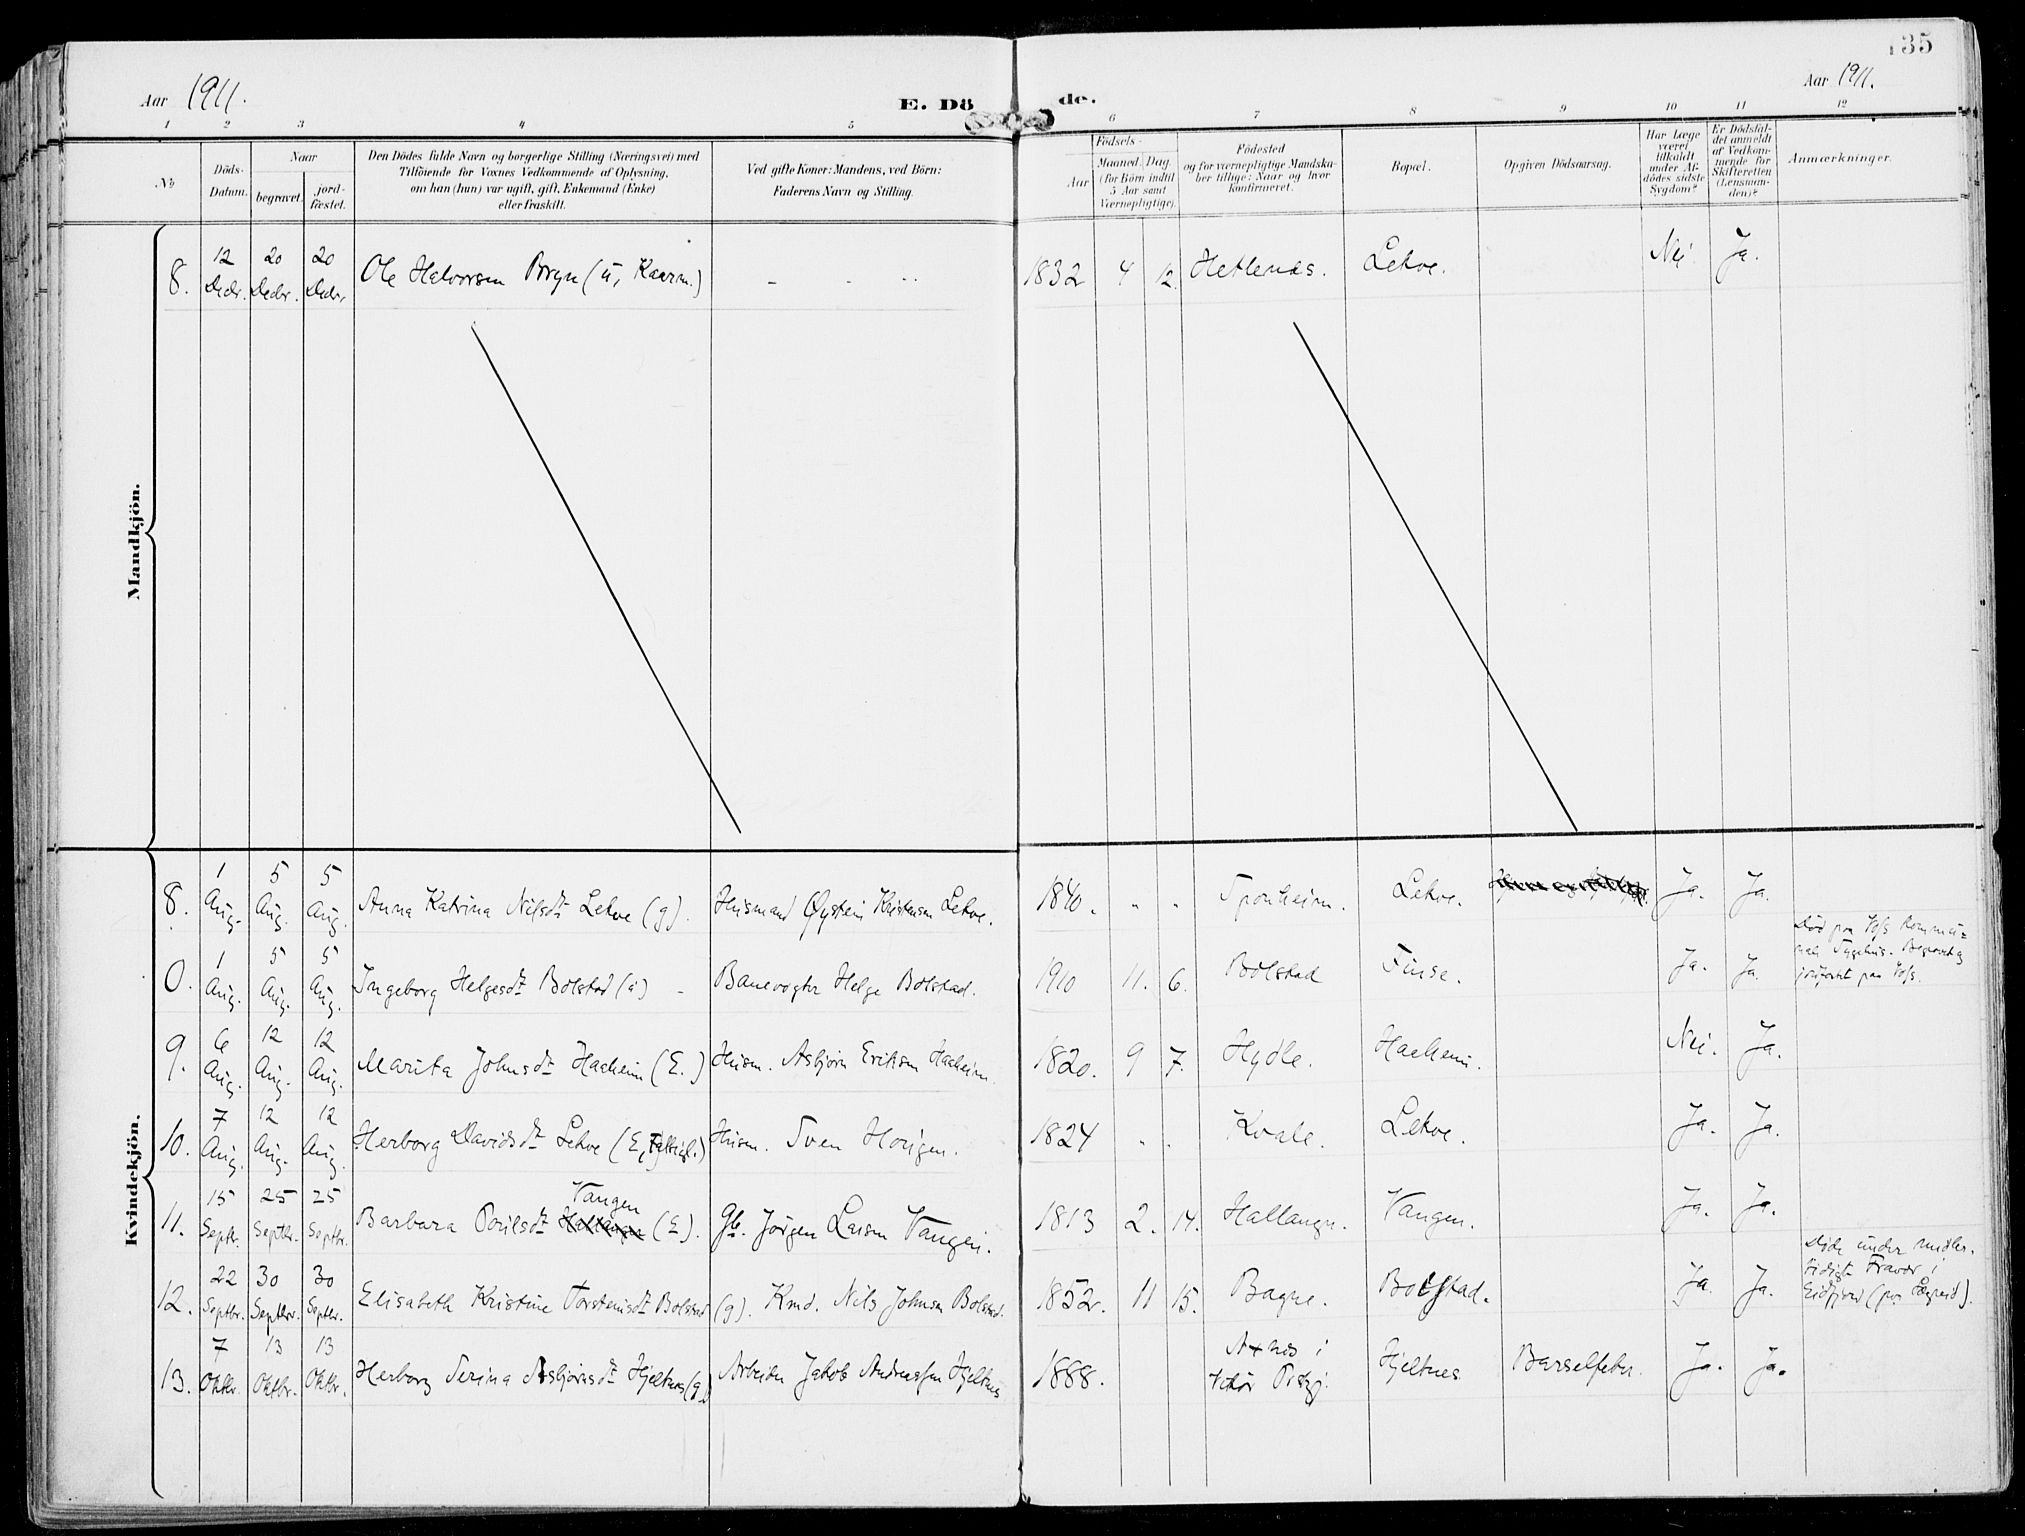 135
Aar 1911.
E. Dö de.
Aar 1911.
1 2 3 4 5 6 7 8 9 10 11 12
No
Döds-
Datum.
Naar
begravet.
jord-
fæstet.
Den Dödes fulde Navn og borgerlige Stilling (Næringsvei) med
Tilföiende for Voxnes Vedkommende af Oplysning,
om han (hun) var ugift, gift, Enkemand (Enke)
eller fraskilt.
Ved gifte Koner: Mandens, ved Börn:
Faderens Navn og Stilling.
Födsels-
Aar
Maaned. Dag.
(for Börn indtil
5 Aar samt
Værnepligtige).
Födested
og for værnepligtige Mandska-
ber tillige: Naar og hvor
konfirmeret.
Bopæl.
Opgiven Dödsaarsag.
Har Læge
været
tilkaldt
under Af-
dödes sidste
Sygdom?
Er Dödsfal-
det anmeldt
af Vedkom-
mende for
Skifteretten
(Lensman-
den)?
Anmærkninger.
Mandkjön.
8. 12 Decbr. 20 Decbr. 20 Decbr. Ole Halvorsen Bryn (u, Kaarm.) - - - 1832 4 12. Hetlenæs. Lekve. Nei Ja.
Kvindekjön.
8. 1 Aug. 5 Aug. 5 Aug. Anna Katrina Nilsdr Lekve (g). Husmand Øystein Kristensen Lekve. 1840. " " Sponheim. Lekve. Ja. Ja.
0. 1 Aug. 5 Aug. 5 Aug. Ingeborg Helgesdr Bolstad (u) - Banevogter Helge Bolstad. 1910 11. 6. Bolstad Finse. Ja. Ja. Død paa Voss Kommu=
nale Sygehus. Begravet og
jordfæstet paa Voss.
9. 6 Aug. 12 Aug. 12 Aug. Marita Johnsdr Haaheim (E.) Husm. Asbjørn Eriksen Haaheim. 1820. 9 7. Hydle. Haaheim. Nei. Ja.
10. 7 Aug. 12 Aug. 12 Aug. Herborg Davidsdr Lekve (E, Fattigl.) Husm. Sven Horgen. 1824 " " Kvale. Lekve. Ja. Ja.
11. 15 Septbr. 25 Septbr. 25 Septbr. Barbara Poulsdr Vangen (E). Gb. Jørgen Larsen Vangen. 1813 2. 14. Hallangn. Vangen. Ja. Ja.
12. 22 Septbr. 30 Septbr. 30 Septbr. Elisabeth Kristine Torsteinsdr Bolstad (g). Kmd. Nils Johnsen Bolstad. 1852. 11 15. Bagne. Bolstad. Ja. Ja. Døde under midler.
tidigt Fravær i
Eidfjord (paa Sægreid).
13. 7 Oktbr. 13 Oktbr. 13 Oktbr. Herborg Serina Asbjørnsdr Hjeltnes (g.) Arbeider Jakob Andreassen Hjeltnes 1888. Axnes i
Vikør Prstgj. Hjeltnes Barselfeber. Ja. Ja.